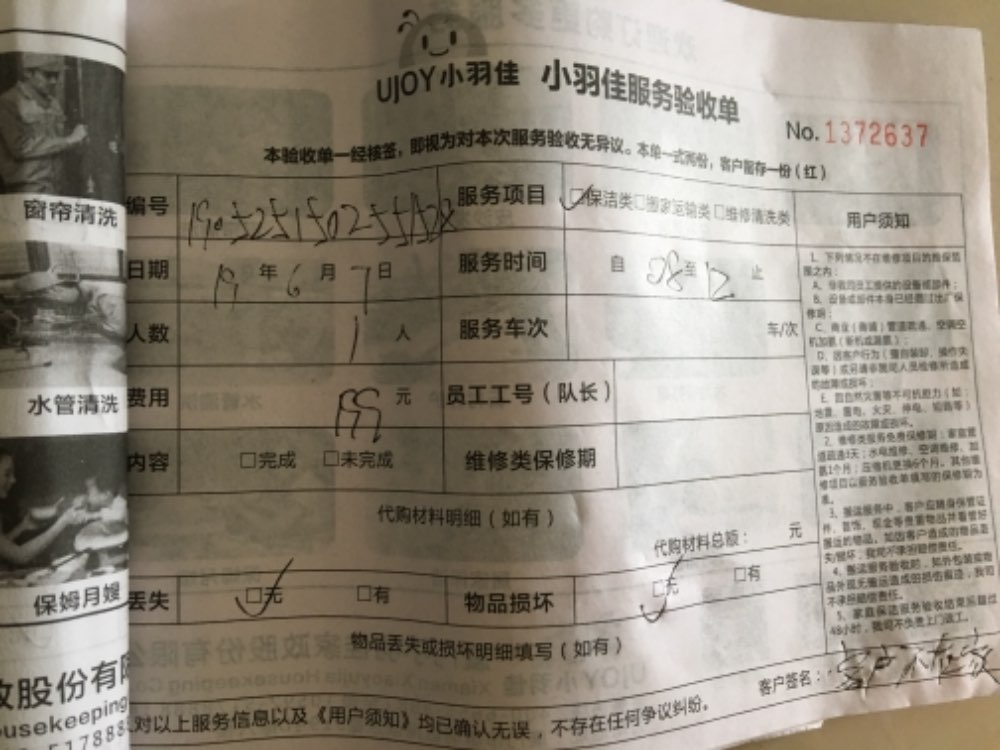 UJOY小羽佳 小羽佳服务验收单
No. 1372637
本验收单一经核签，即视为对本次服务验收无异议。本单一式两份，客户留存一份（红）
编号
服务项目 □保洁类□搬家运输类 □维修清洗类
用户须知
日期 19 年 6 月 7 日
服务时间 自 08 至 12 止
人数 1 人
服务车次 车/次
费用 元
员工工号（队长）
内容 □完成 □未完成
维修类保修期
代购材料明细（如有）
代购材料总额： 元
丢失 □无 □有
物品损坏 □无 □有
物品丢失或损坏明细填写（如有）
客户签名：客户不在家
对以上服务信息以及《用户须知》均已确认无误，不存在任何争议纠纷。
1、下列情况不在维修项目的担保范
围之内：
A、非我司员工提供的设备或部件；
B、设备或部件本身已经超过出厂保
修期；
C、商业（商铺）管道疏通、空调空
机加氨（新机或漏氨）；
D、因客户行为（擅自装卸、操作失
误等）或另请非我司人员检修所造成
的故障或损坏；
E、因自然灾害等不可抗力（如：
地震、雷电、火灾、停电、短路等）
原因造成的故障或损坏。
2、维修类服务免费保修期：家庭管
道疏通3天；水电维修、空调维修、加
氨1个月；压缩机更换6个月。其他维
修项目以服务验收单填写的保修期为
准。
3、搬运服务中，客户应随身保管证
件、首饰、现金等贵重物品并看管好
搬运的物品。如因客户造成的物品丢
失/破坏，我司不承担赔偿责任。
4、搬运服务验收时，如外包装或物
品外观无搬运造成的损伤痕迹，我司
不承担赔偿责任。
5、家庭保洁服务验收结束后超过
48小时，我司不负责上门返工。
窗帘清洗
水管清洗
保姆月嫂
政股份有限
ousekeeping
517888